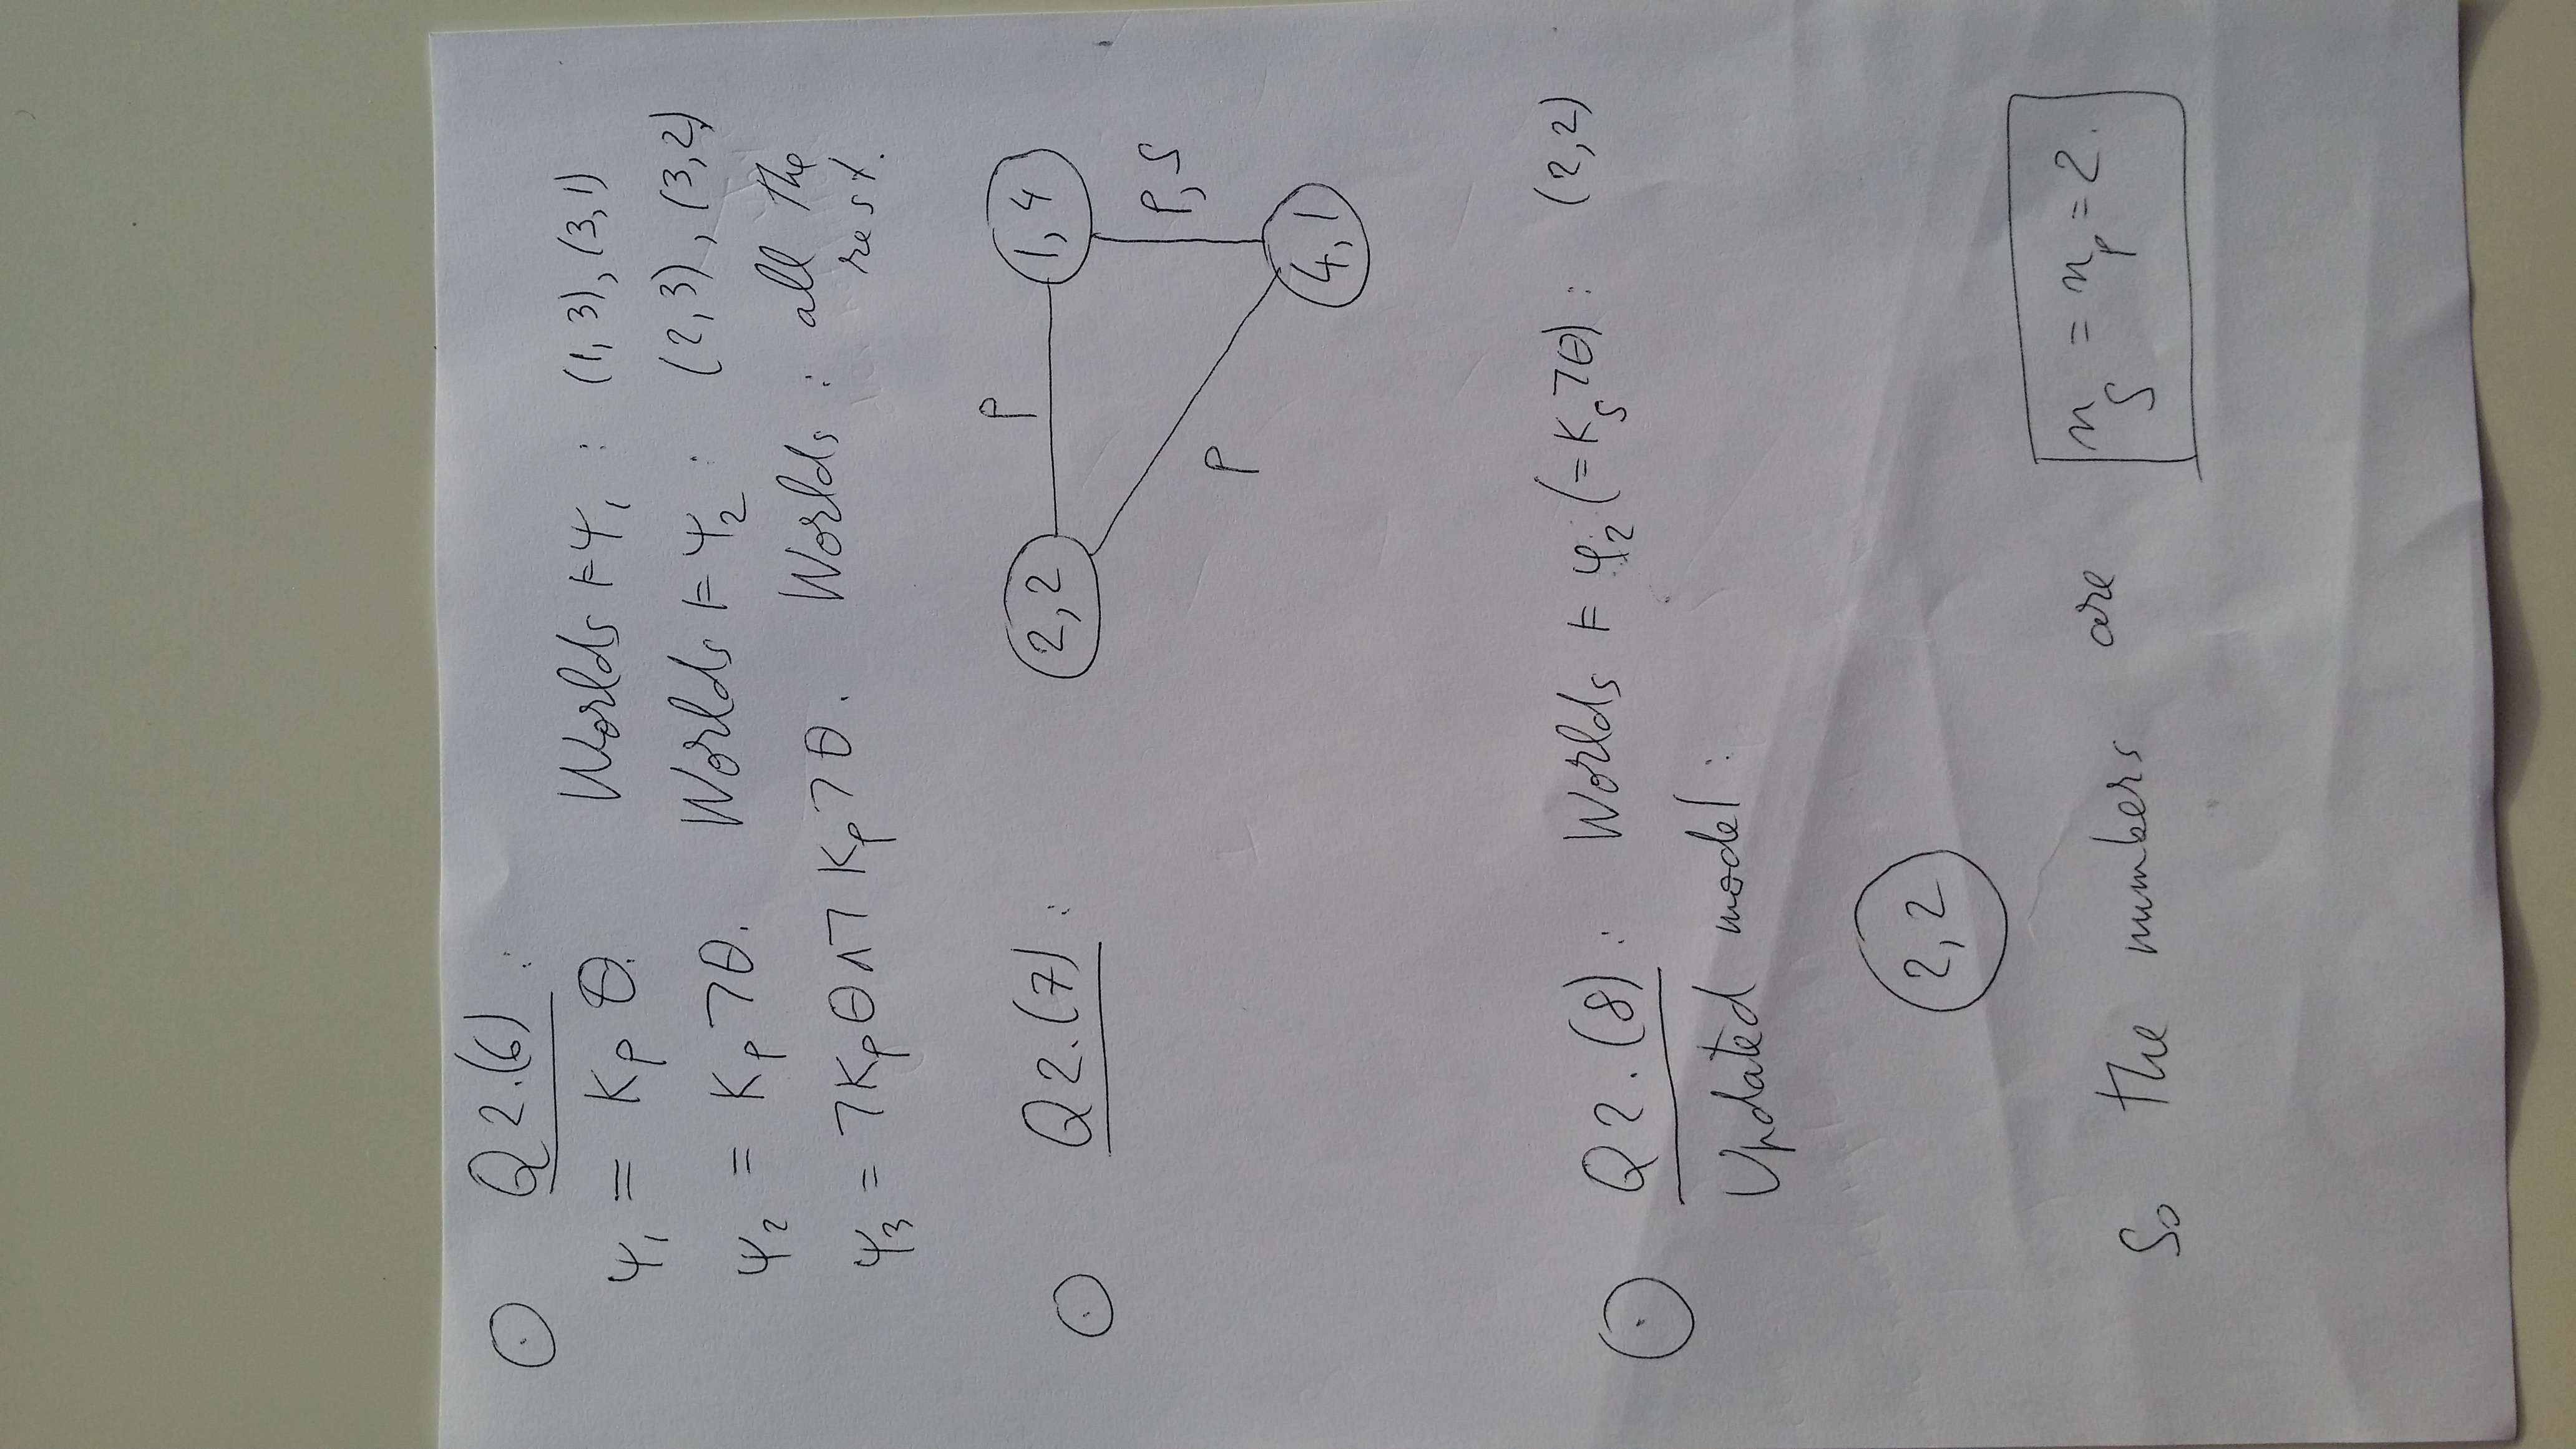 ⊙ Q2.(6):
ψ₁ = K_P θ. Worlds ⊨ ψ₁ : (1,3), (3,1)
ψ₂ = K_P ¬θ. Worlds ⊨ ψ₂ : (2,3), (3,2)
ψ₃ = ¬K_P θ ∧ ¬K_P ¬θ. Worlds : all the rest.
⊙ Q2.(7):
2,2
P
1,4
P
P,S
4,1
⊙ Q2.(8): Worlds ⊨ φ₂ (= K_S ¬θ): (2,2)
Updated model:
2,2
So the numbers are n_S = n_P = 2.